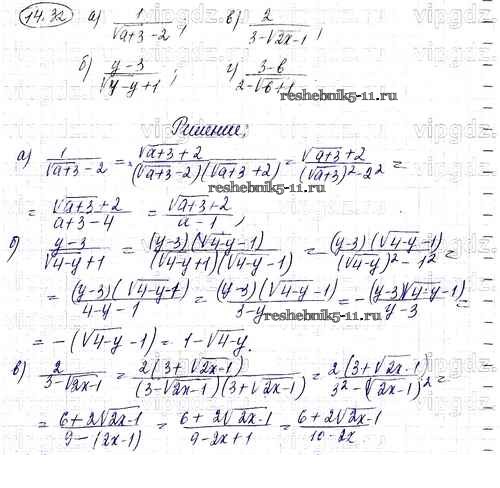 14.32 а) 1/(√(a+3) - 2); в) 2/(3-√(2x-1));
б) (y-3)/(√(4-y)+1); г) (3-b)/(2-√(b+1)).
reshebnik5-11.ru
Решение:
а) 1/(√(a+3) - 2) = (√(a+3) + 2)/((√(a+3) - 2)(√(a+3) + 2)) = (√(a+3) + 2)/((√(a+3))² - 2²) =
= (√(a+3) + 2)/(a+3-4) = (√(a+3) + 2)/(a-1);
б) (y-3)/(√(4-y)+1) = (y-3)(√(4-y)-1)/((√(4-y)+1)(√(4-y)-1)) = (y-3)(√(4-y)-1)/((√(4-y))² - 1²) =
= (y-3)(√(4-y)-1)/(4-y-1) = (y-3)(√(4-y)-1)/(3-y) = -(y-3)(√(4-y)-1)/(y-3) =
reshebnik5-11.ru
= -(√(4-y)-1) = 1-√(4-y).
в) 2/(3-√(2x-1)) = 2(3+√(2x-1))/((3-√(2x-1))(3+√(2x-1))) = 2(3+√(2x-1))/(3²-(√(2x-1))²) =
= (6+2√(2x-1))/(9-(2x-1)) = (6+2√(2x-1))/(9-2x+1) = (6+2√(2x-1))/(10-2x).